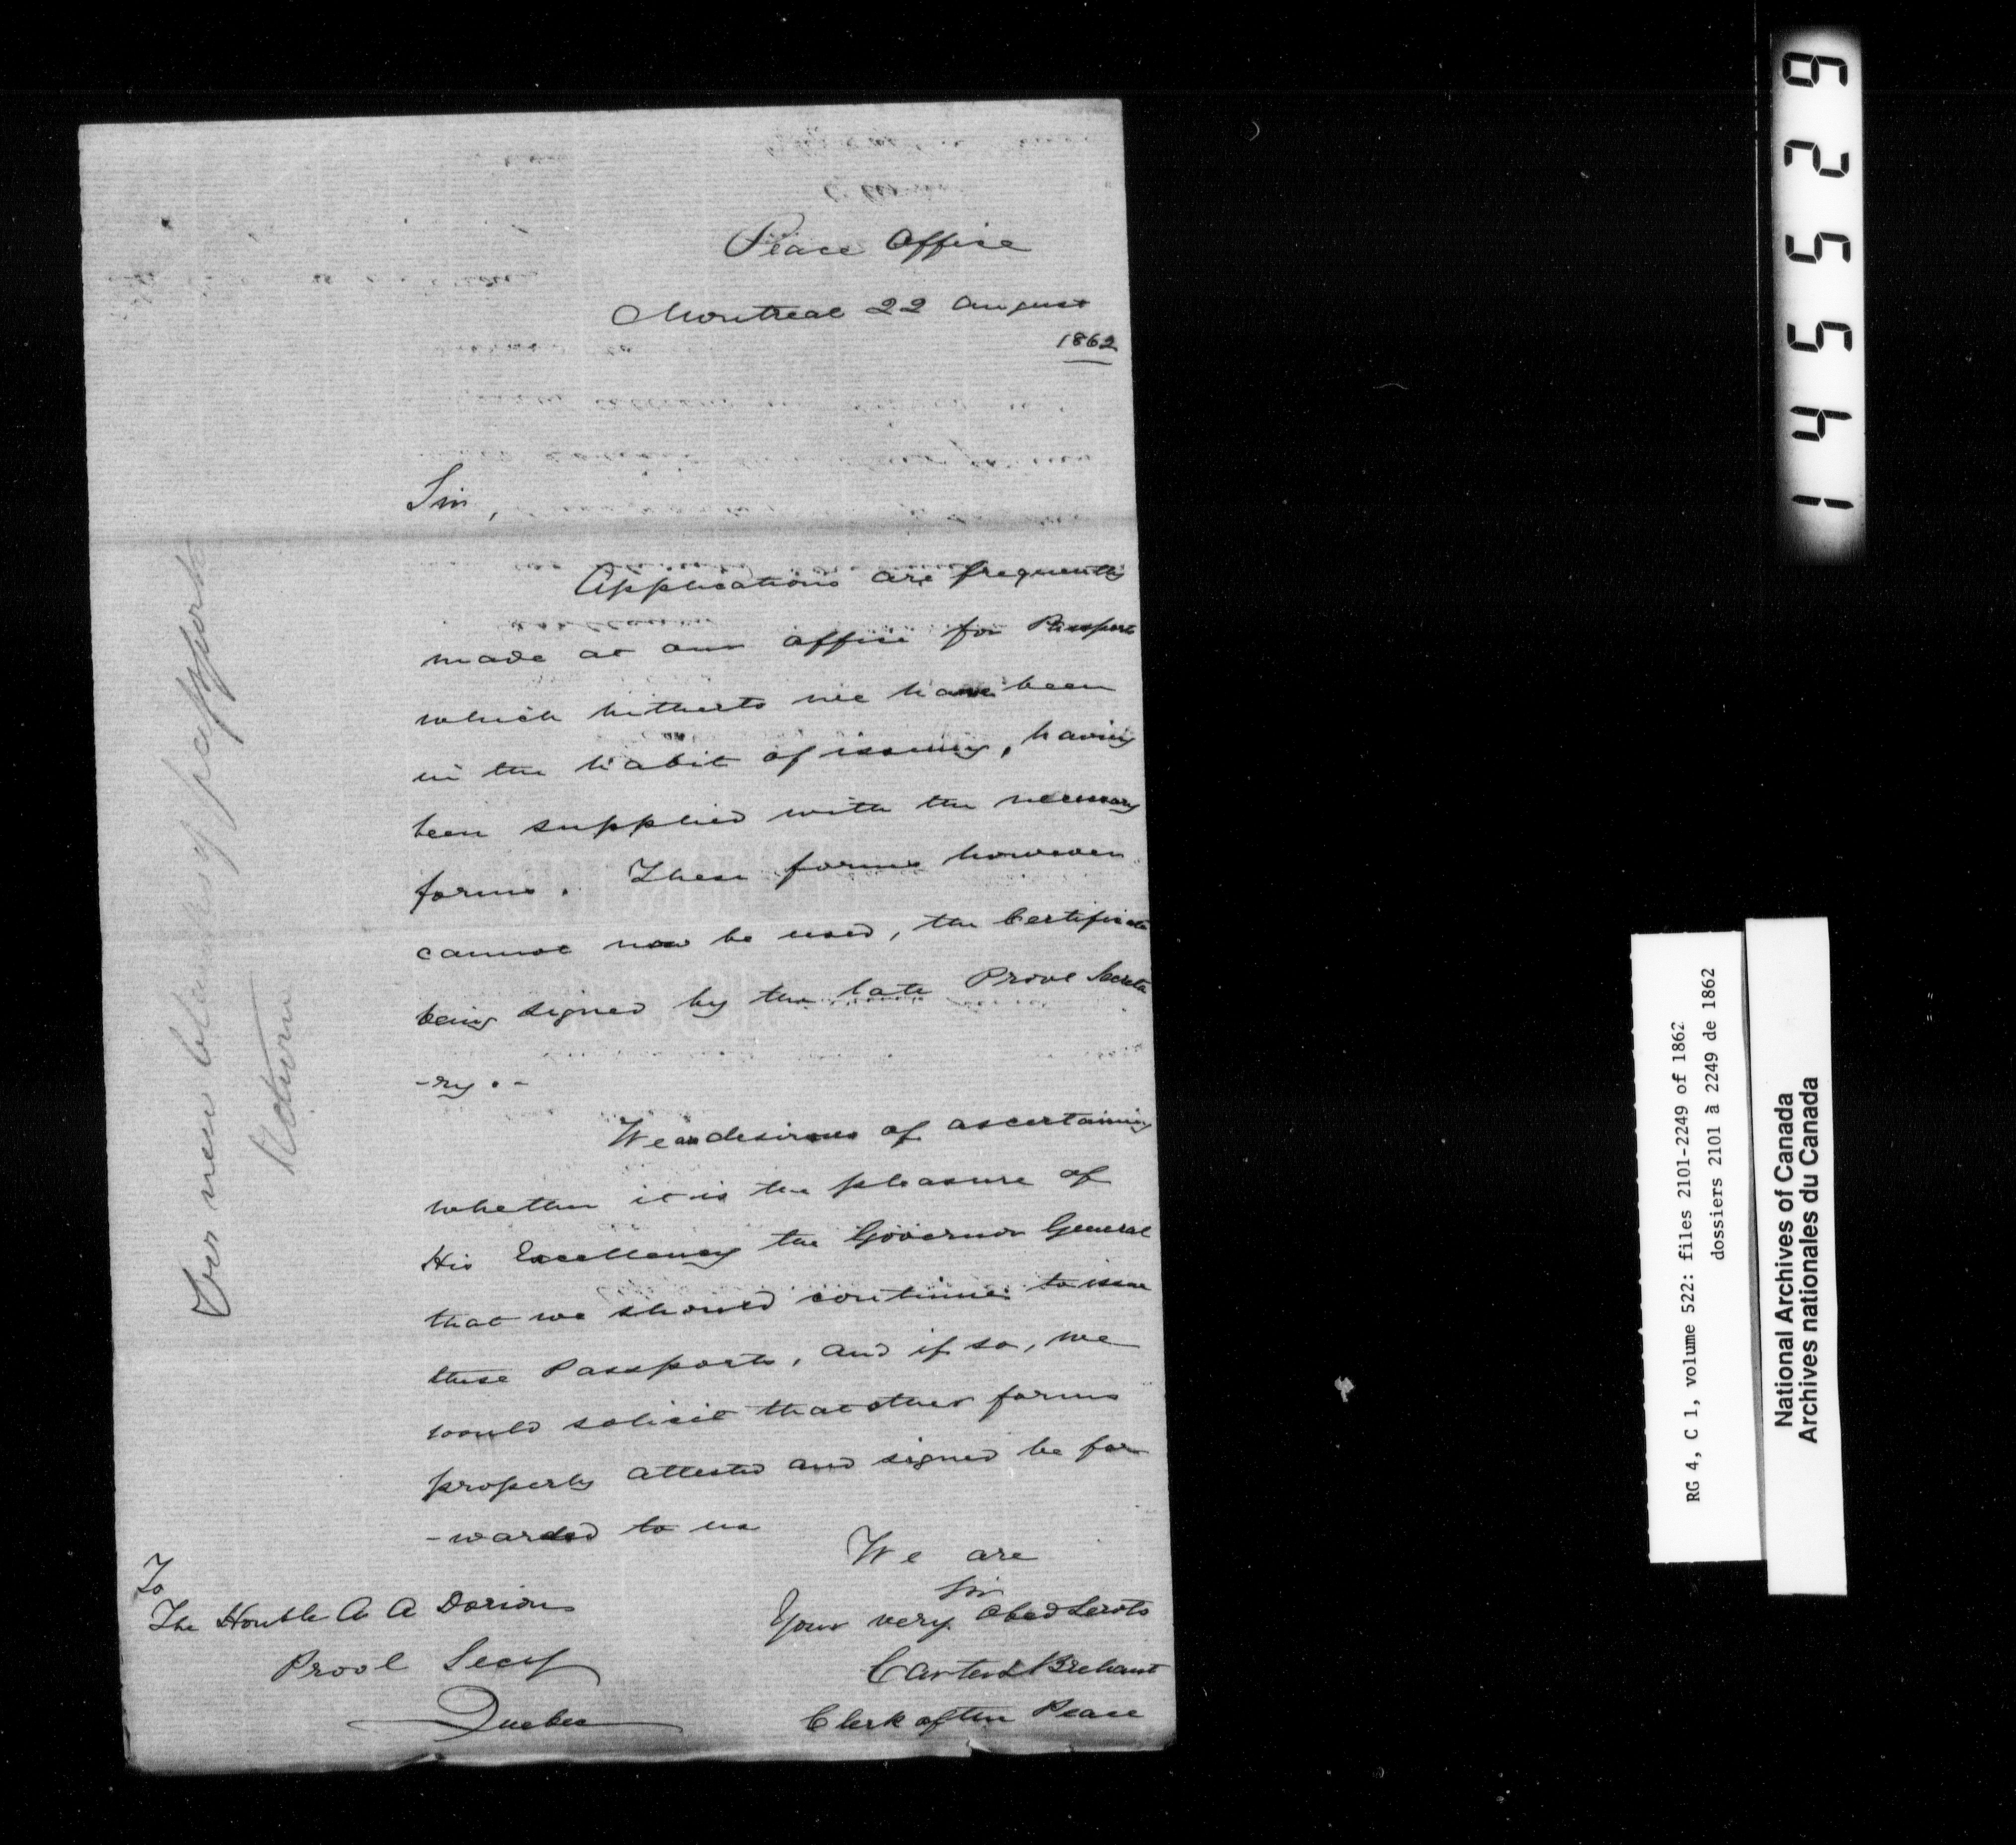 Peace Office
Montreal 22 August
1862
Sir,
Applications are frequently
made at our office for Passports
which hitherto we have been
in the habit of issuing, having
been supplied with the necessary
forms. These forms however
cannot now be used, the Certificate
being signed by the late Provl Secreta
-ry.-
We are desirous of ascertaining
whether it is the pleasure of
His Excellency the Governor General
that we should continue to issue
these Passports, and if so, we
would solicit that other forms
properly attested and signed be for
-warded to us
We are
Sir
Your very Obed Servts
Carter & Brehaut
Clerk of the Peace
To
The Honble A A Dorion
Provl Secy
Quebec
new blanks of passports
Return
145529
RG 4, C 1, volume 522: files 2101-2249 of 1862
dossiers 2101 à 2249 de 1862
National Archives of Canada
Archives nationales du Canada